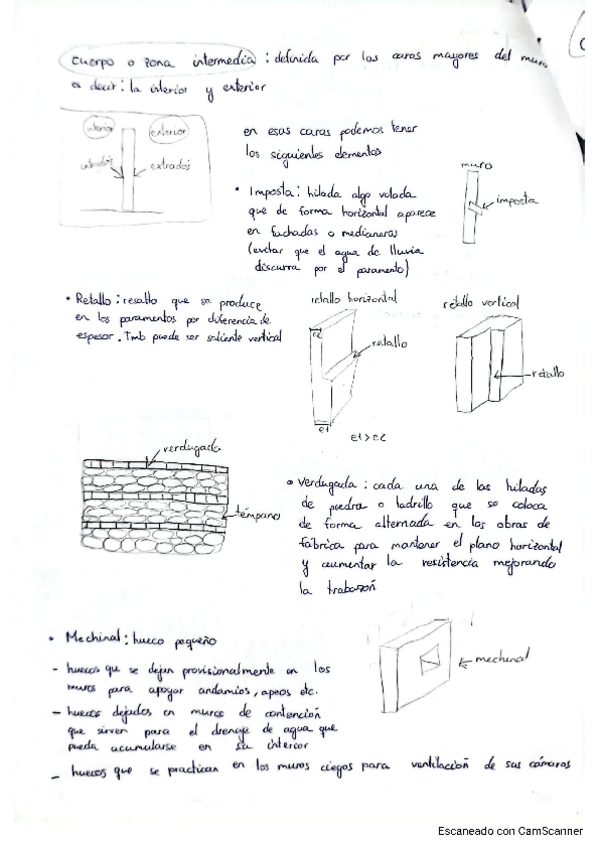 Cuerpo o zona intermedia : definida por las caras mayores del muro
es decir : la interior y exterior
interior
exterior
intradós
extradós
en esas caras podemos tener
los siguientes elementos
• Imposta : hilada algo volada
que de forma horizontal aparece
en fachadas o medianeras
(evitar que el agua de lluvia
discurra por el paramento)
muro
imposta
• Retallo : resalto que se produce
en los paramentos por diferencia de
espesor. Tmb puede ser saliente vertical
retallo horizontal
e2
retallo
e1
e1>e2
retallo vertical
retallo
verdugada
témpano
• Verdugada : cada una de las hiladas
de piedra o ladrillo que se coloca
de forma alternada en las obras de
fábrica para mantener el plano horizontal
y aumentar la resistencia mejorando
la trabazón
• Mechinal : hueco pequeño
- huecos que se dejan provisionalmente en los
muros para apoyar andamios, apeos etc.
- huecos dejados en muros de contención
que sirven para el drenaje de agua que
pueda acumularse en su interior
- huecos que se practican en los muros ciegos para ventilación de sus cámaras
mechinal
Escaneado con CamScanner